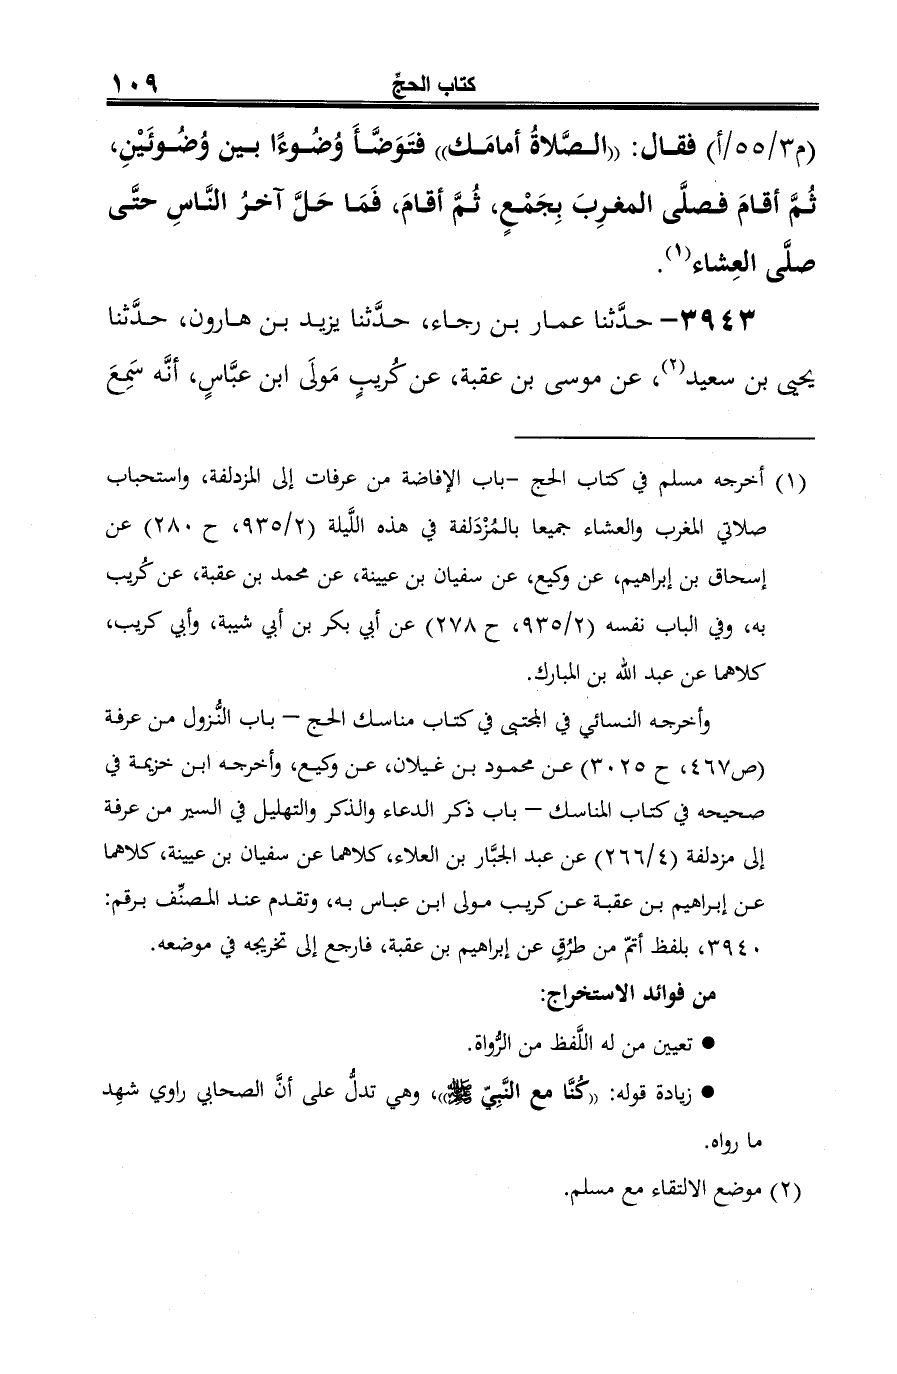 كتاب الحجِّ ١٠٩
(م٥٥/٣/أ) فقال: ((الصَّلاةُ أمامَك)) فتَوَضَّأَ وُضُوءًا بين وُضُوئَيْنِ،
ثُمَّ أقامَ فصلَّى المغرِبَ بِجَمْعٍ، ثُمَّ أقامَ، فَمَا حَلَّ آخرُ النَّاسِ حتَّى
صلَّى العِشاء(١).
٣٩٤٣- حدَّثنا عمار بن رجاء، حدَّثنا يزيد بن هارون، حدَّثنا
يحيى بن سعيد(٢)، عن موسى بن عقبة، عن كُريبٍ مَولَى ابن عبَّاسٍ، أنَّه سَمِعَ
(١) أخرجه مسلم في كتاب الحج -باب الإفاضة من عرفات إلى المزدلفة، واستحباب
صلاتي المغرب والعشاء جميعا بالمُزْدَلفة في هذه اللَّيلة (٩٣٥/٢، ح ٢٨٠) عن
إسحاق بن إبراهيم، عن وكيع، عن سفيان بن عيينة، عن محمد بن عقبة، عن كُريب
به، وفي الباب نفسه (٩٣٥/٢، ح ٢٧٨) عن أبي بكر بن أبي شيبة، وأبي كريب،
كلاهما عن عبد الله بن المبارك.
وأخرجه النسائي في المجتبى في كتاب مناسك الحج – باب النُّزول من عرفة
(ص٤٦٧، ح ٣٠٢٥) عن محمود بن غيلان، عن وكيع، وأخرجه ابن خزيمة في
صحيحه في كتاب المناسك – باب ذكر الدعاء والذكر والتهليل في السير من عرفة
إلى مزدلفة (٢٦٦/٤) عن عبد الجبَّار بن العلاء، كلاهما عن سفيان بن عيينة، كلاهما
عن إبراهيم بن عقبة عن كريب مولى ابن عباس به، وتقدم عند المصنِّف برقم:
٣٩٤٠، بلفظ أتمّ من طرُقٍ عن إبراهيم بن عقبة، فارجع إلى تخريجه في موضعه.
من فوائد الاستخراج:
● تعيين من له اللَّفظ من الرُّواة.
● زيادة قوله: ((كُنَّا مع النَّبيّ ﷺ))، وهي تدلُّ على أنَّ الصحابي راوي شهِد
ما رواه.
(٢) موضع الالتقاء مع مسلم.